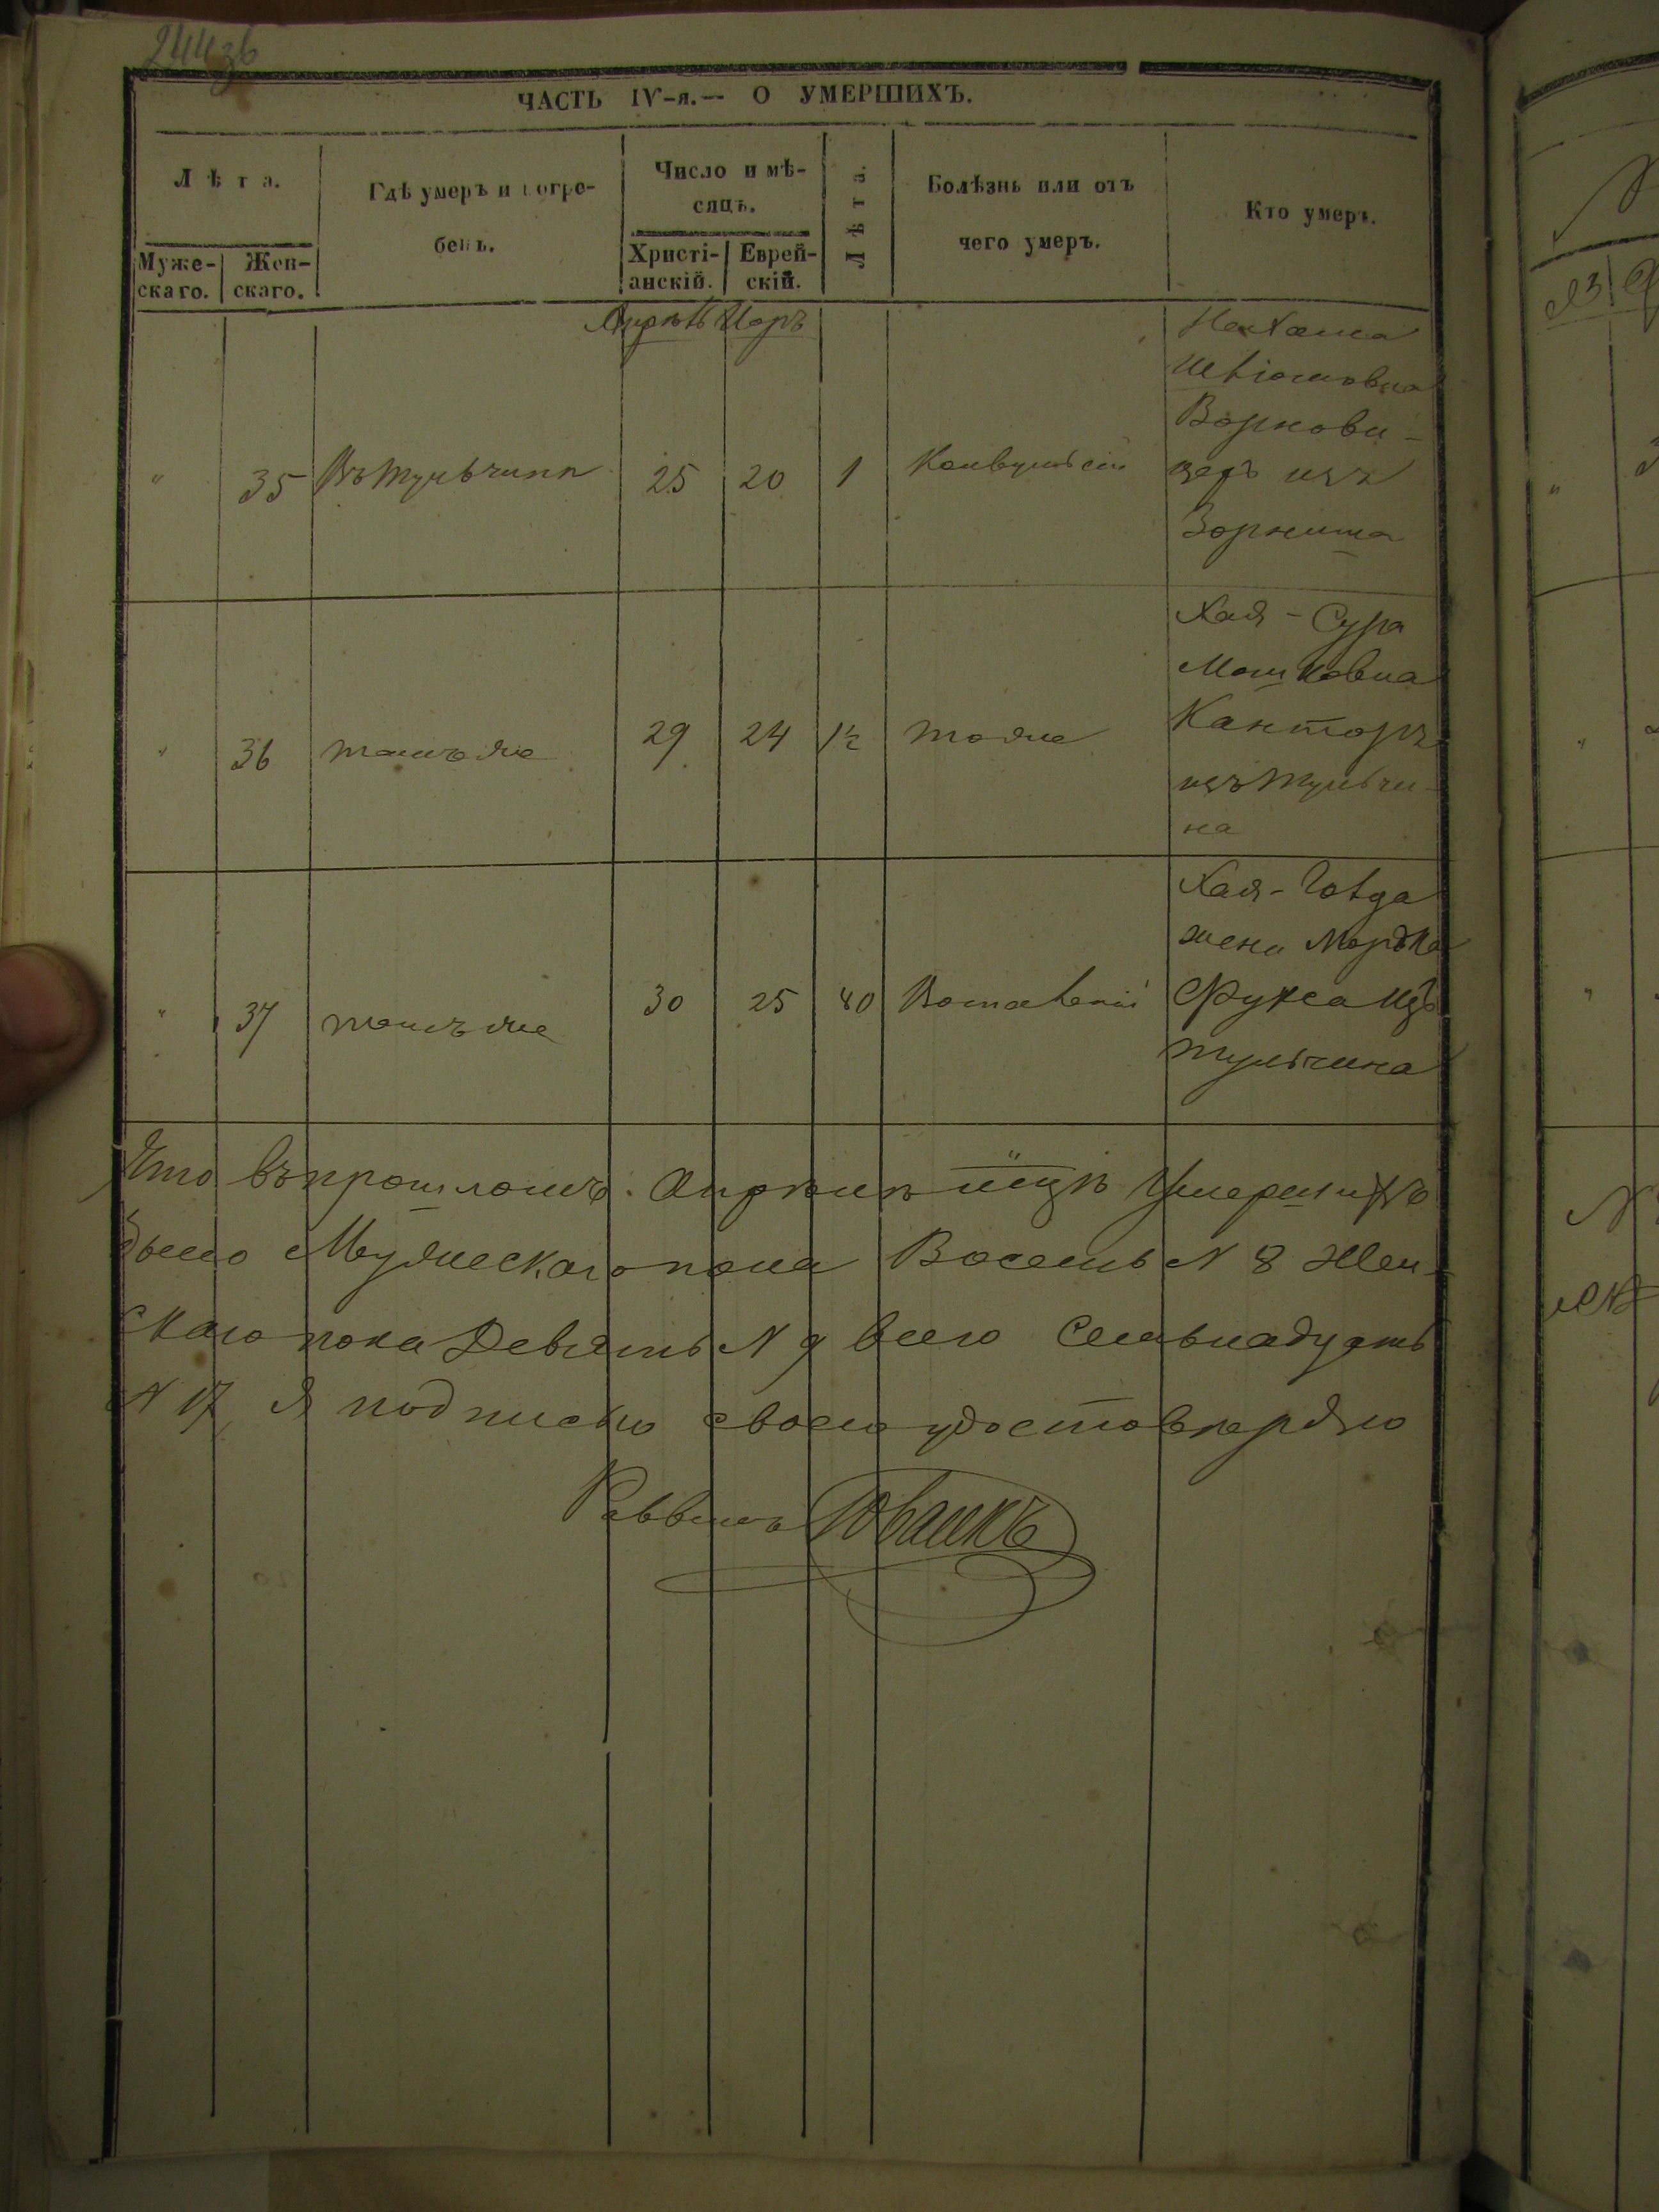 244зб
ЧАСТЬ IV-я.— О УМЕРШИХЪ.
Лѣта.
Мужескаго.
Женскаго.
Гдѣ умеръ и погребенъ.
Число и мѣсяцъ.
Христіанскій.
Еврейскій.
Лѣта.
Болѣзнь или отъ чего умеръ.
Кто умеръ.
Апрель Иоръ
" 35 Въ Тульчинѣ 25 20 1 Конвульсіи
Нехама
Ворнови-
церъ изъ
Ворнита
" 36 тамъ же 29 24 1½ тоже
Хая - Сура
Мошковна
Канторъ
изъ Тульчи-
на
" 37 тамъ же 30 25 80
Хая - Говда
жена Мордка
Фукса изъ
Тульчина
Что въ прошломъ Апрѣлѣ м-цѣ Умершихъ
было Мужескаго пола Восемь N 8 Жен-
скаго пола Девять N 9 всего Семьнадцать
N 17, Я подписью своею удостовѣряю
Раввинъ